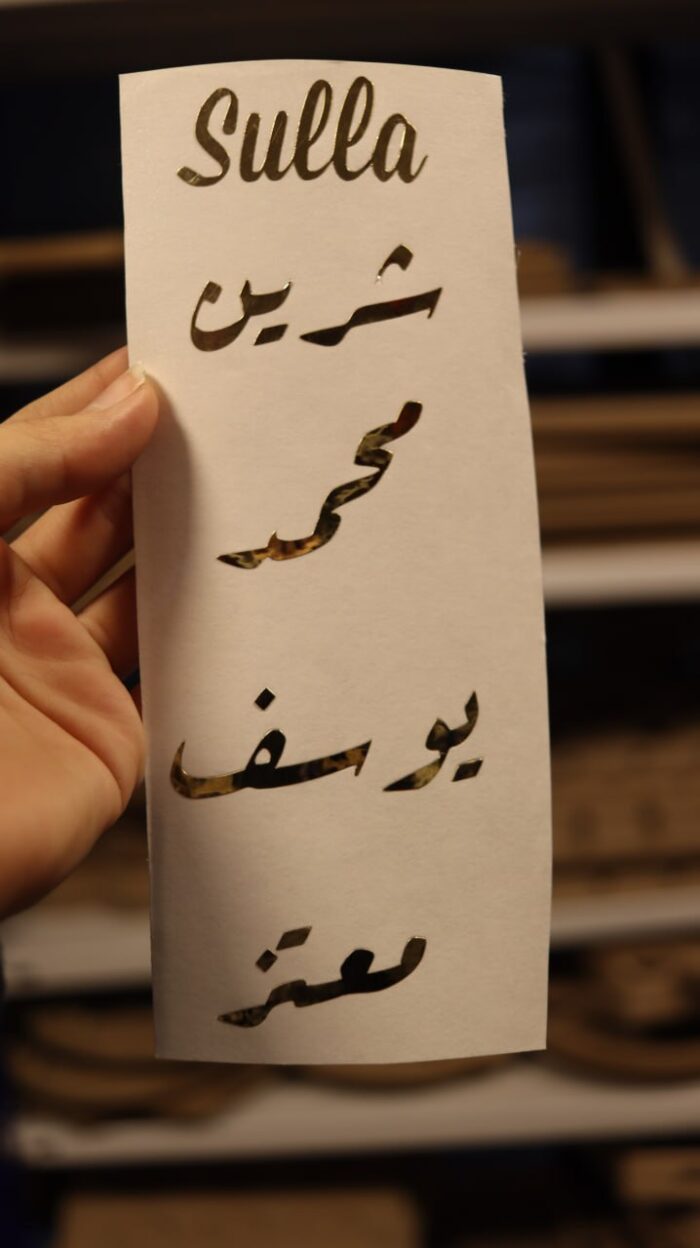 Sulla
شرين
محمد
يوسف
معتز